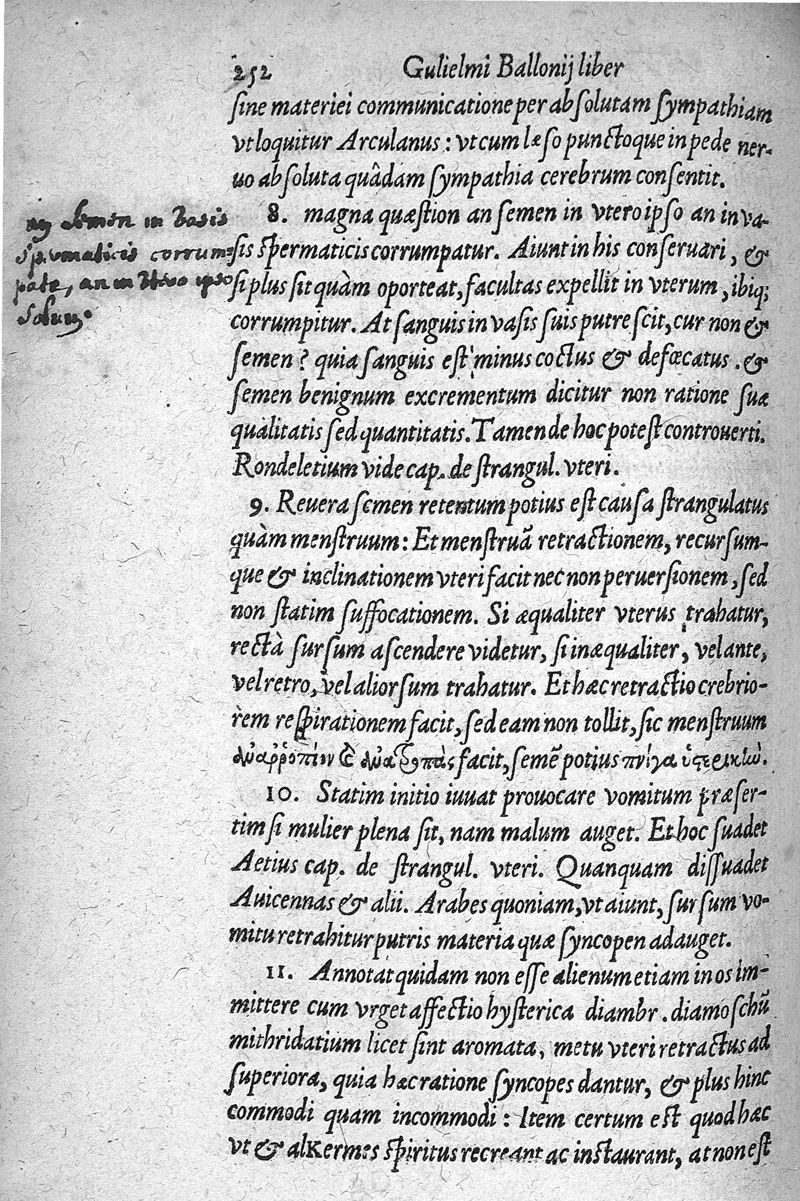 252 Gulielmi Ballonij liber
sine materiei communicatione per absolutam sympathiam
vt loquitur Arculanus : vt cum læso punctoque in pede ner-
uo absoluta quâdam sympathia cerebrum consentit.
8. magna quæstion an semen in vtero ipso an in va-
sis spermaticis corrumpatur. Aiunt in his conseruari, &
si plus sit quàm oporteat, facultas expellit in vterum, ibiq;
corrumpitur. At sanguis in vasis suis putrescit, cur non &
semen ? quia sanguis est minus coctus & defœcatus . &
semen benignum excrementum dicitur non ratione suæ
qualitatis sed quantitatis. Tamen de hoc potest controuerti.
Rondeletium vide cap. de strangul. vteri.
9. Reuera semen retentum potius est causa strangulatus
quàm menstruum : Et menstruã retractionem, recursum-
que & inclinationem vteri facit nec non peruersionem, sed
non statim suffocationem. Si æqualiter vterus trahatur,
rectà sursum ascendere videtur, si inæqualiter, vel ante,
vel retro, vel aliorsum trahatur. Et hæc retractio crebrio-
rem respirationem facit, sed eam non tollit, sic menstruum
facit, semẽ potius
10. Statim initio iuuat prouocare vomitum præser-
tim si mulier plena sit, nam malum auget. Et hoc suadet
Aetius cap. de strangul. vteri. Quanquam dissuadet
Auicennas & alii. Arabes quoniam, vt aiunt, sursum vo-
mitu retrahitur putris materia quæ syncopen adauget.
11. Annotat quidam non esse alienum etiam in os im-
mittere cum vrget affectio hysterica diambr. diamoschũ
mithridatium licet sint aromata, metu vteri retractus ad
superiora, quia hæc ratione syncopes dantur, & plus hinc
commodi quam incommodi : Item certum est quod hæc
vt & alKermes spiritus recreant ac instaurant, at non est
semen in vasis
corrum-
an in vtero ipso